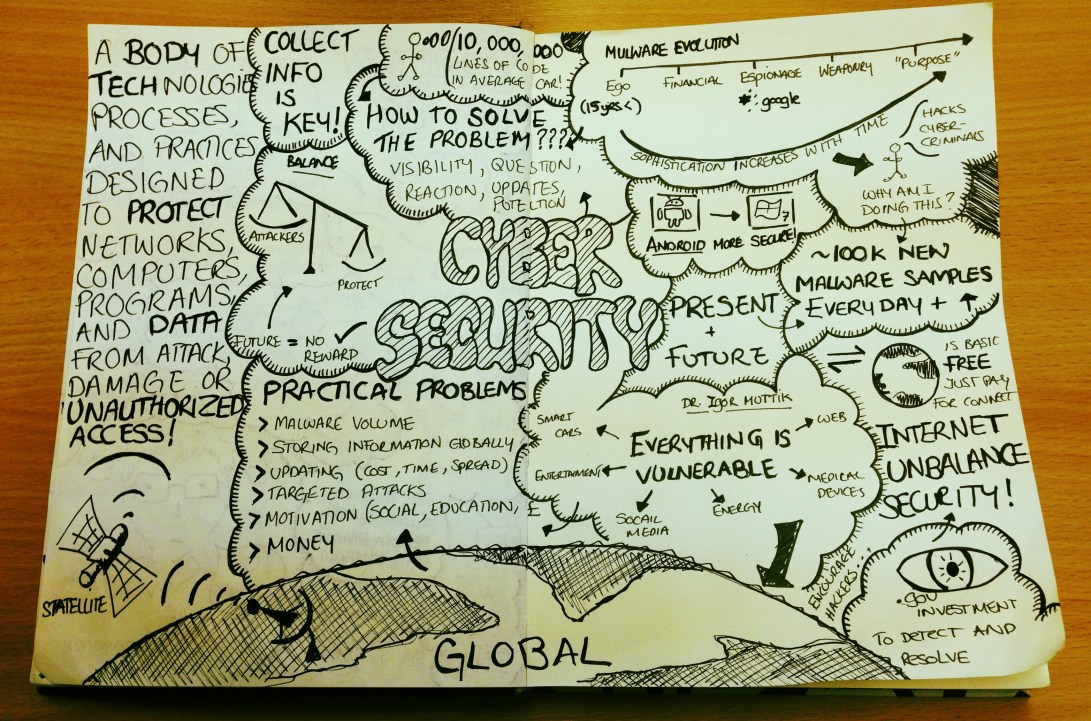 A BODY OF
TECHNOLOGIES
PROCESSES,
AND PRACTICES
DESIGNED
TO PROTECT
NETWORKS,
COMPUTERS,
PROGRAMS,
AND DATA
FROM ATTACK,
DAMAGE OR
UNAUTHORIZED
ACCESS!
STATELLITE
COLLECT
INFO
IS
KEY!
10,000,000
LINES OF CODE
IN AVERAGE CAR!
HOW TO SOLVE
THE PROBLEM???
VISIBILITY, QUESTION,
REACTION, UPDATES,
POTECTION
BALANCE
ATTACKERS
PROTECT
FUTURE = NO
REWARD
CYBER
SECURITY
PRACTICAL PROBLEMS
> MALWARE VOLUME
> STORING INFORMATION GLOBALLY
> UPDATING (COST, TIME, SPREAD)
> TARGETED ATTACKS
> MOTIVATION (SOCIAL, EDUCATION, £
> MONEY
MULWARE EVOLUTION
Ego
(15yrs<)
FINANCIAL
ESPIONAGE
google
WEAPONRY
"PURPOSE"
SOPHISTICATION INCREASES WITH TIME
HACKS
CYBER-
CRIMINALS
WHY AM I
DOING THIS?
7
ANDROID MORE SECURE!
~100K NEW
MALWARE SAMPLES
EVERYDAY +
PRESENT
+
FUTURE
IS BASIC
FREE
JUST PAY
FOR CONNECT
INTERNET
UNBALANCE
SECURITY!
DR. IGOR MUTTIK
EVERYTHING IS
VULNERABLE
SMART
CARS
WEB
ENTERTAIMENT
MEDICAL
DEVICES
SOCAIL
MEDIA
ENERGY
ENCOURAGE
HACKERS...
.GOV
INVESTMENT
TO DETECT AND
RESOLVE
GLOBAL